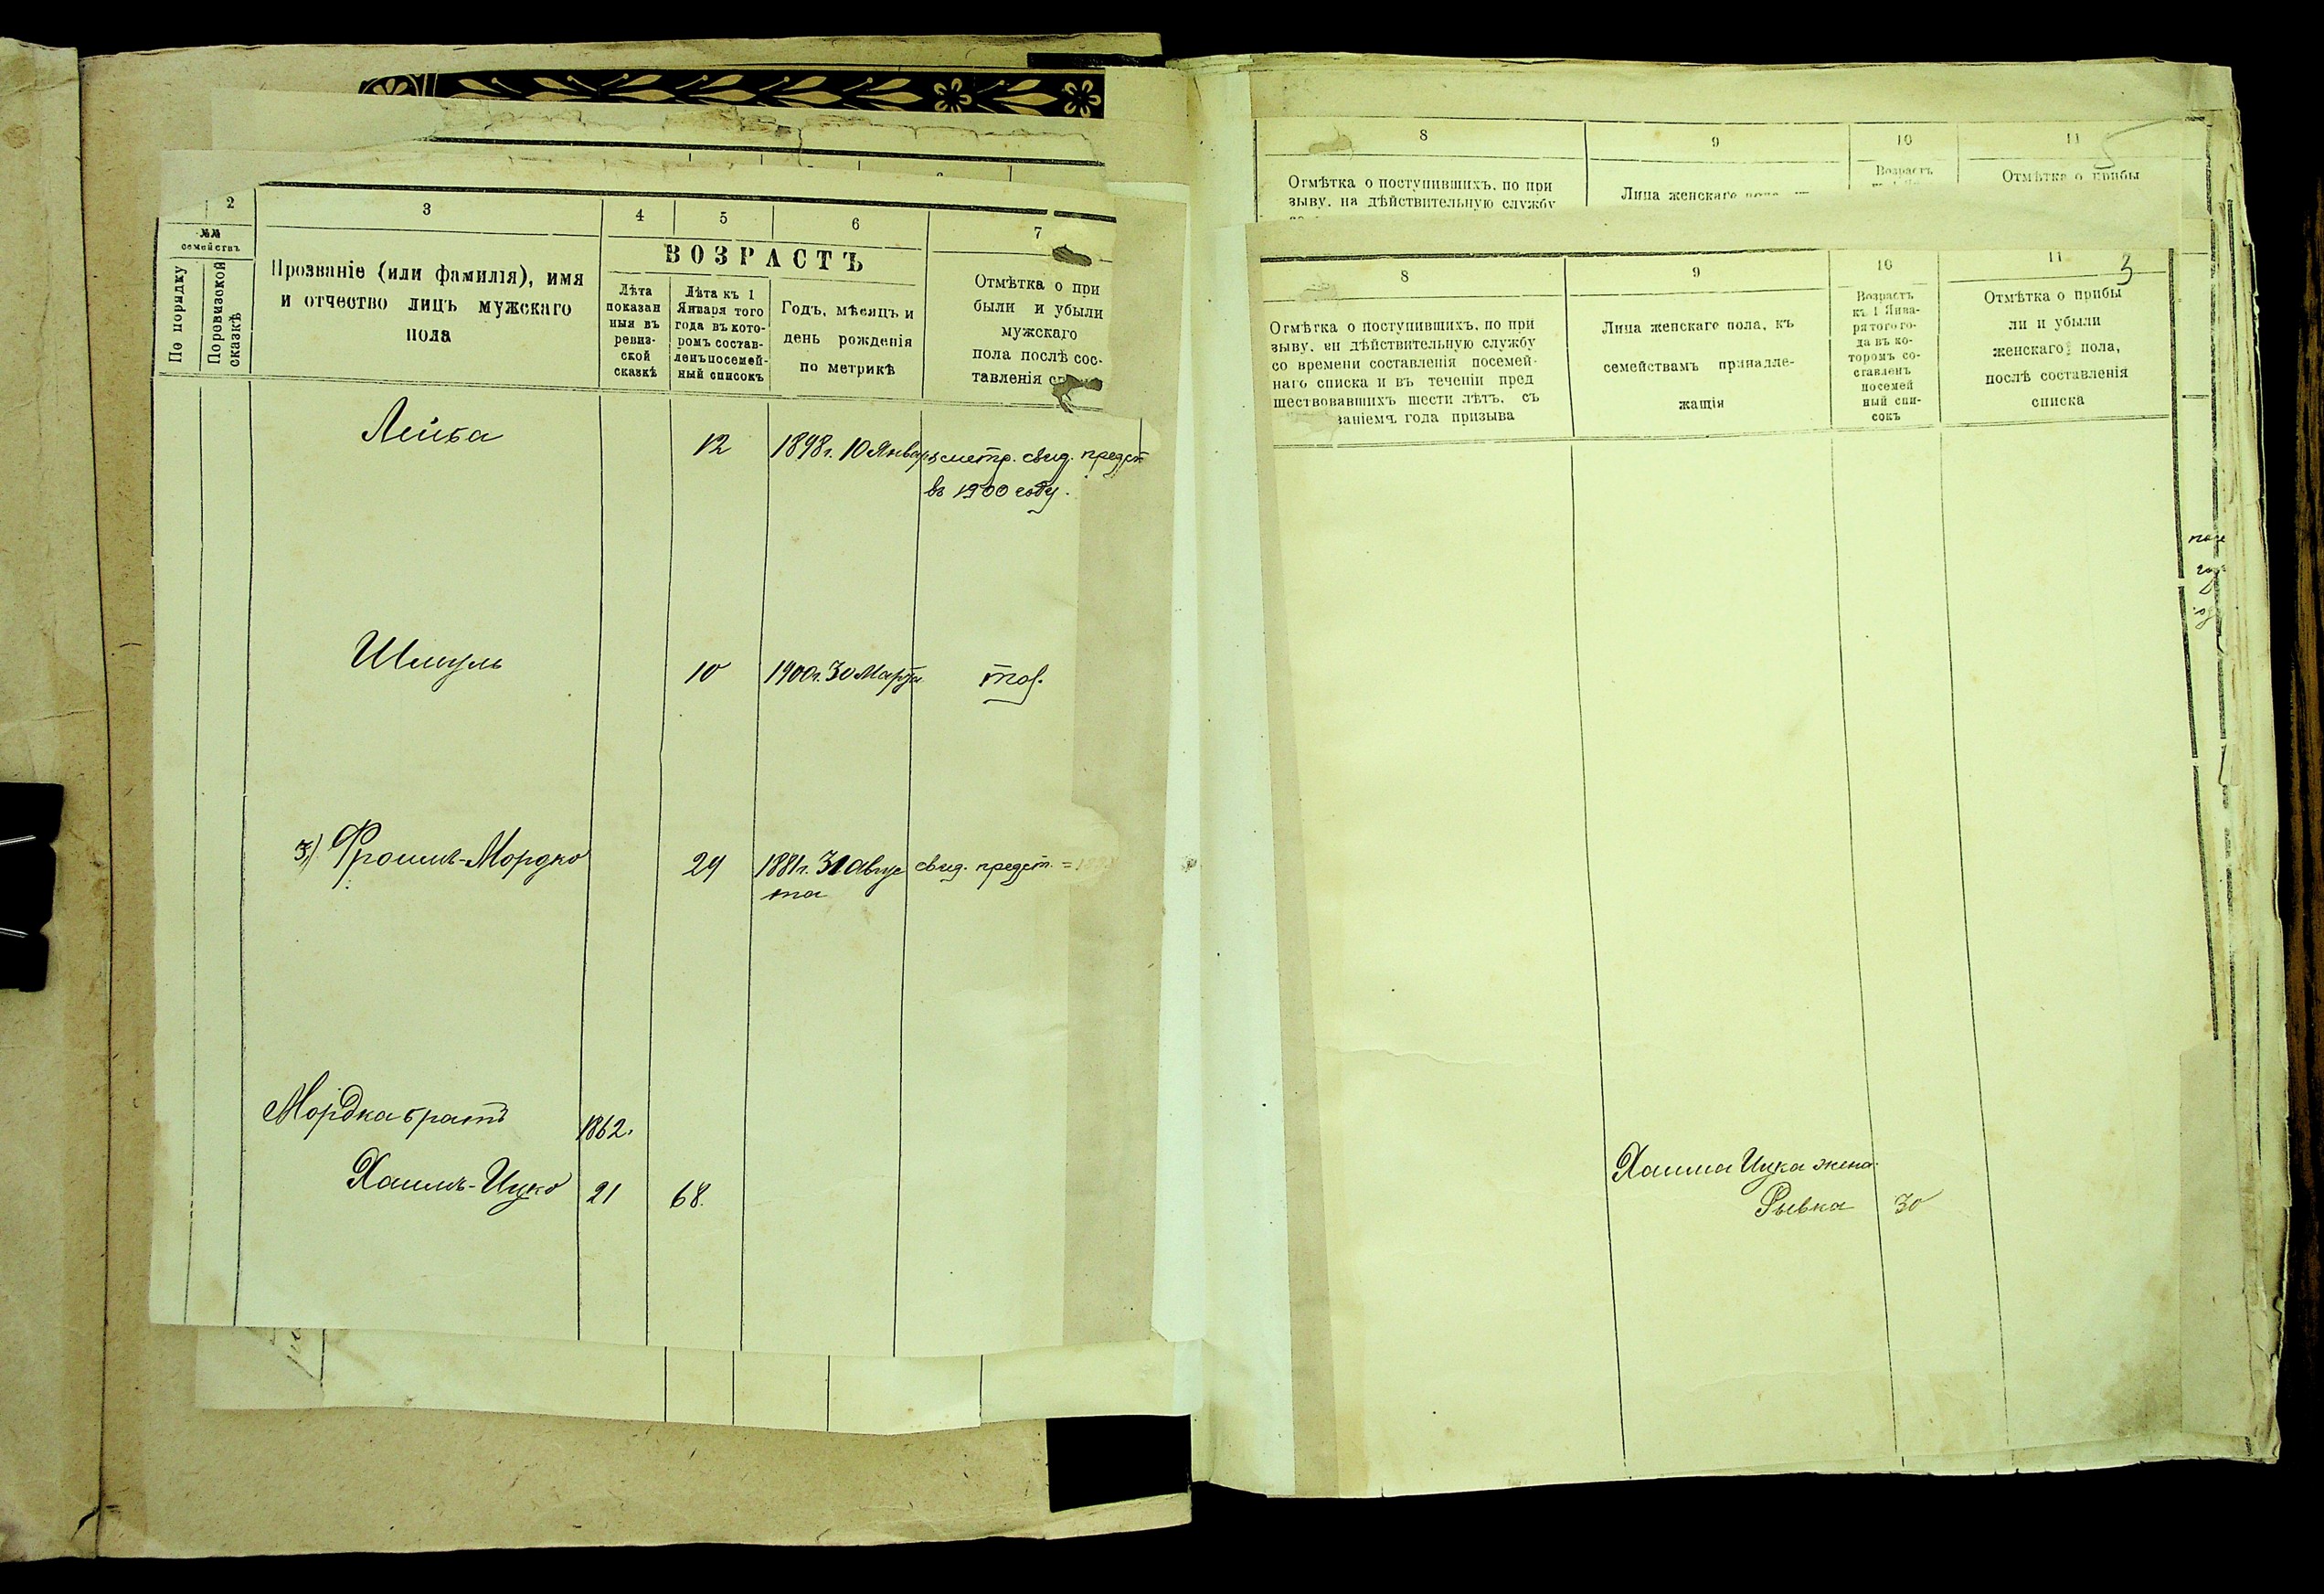 2
3
4
5
6
7
№№
семействъ
По порядку
Поревизской
сказкѣ
Прозваніе (или фамилія), имя
и отчество лицъ мужскаго
пола
ВОЗРАСТЪ
Лѣта
показан
ныя въ
ревиз-
ской
сказкѣ
Лѣта къ 1
Января того
года въ кото-
ромъ состав-
ленъ посемей-
ный списокъ
Годъ, мѣсяцъ и
день рожденія
по метрикѣ
Отмѣтка о при
были и убыли
мужскаго
пола послѣ сос-
тавленія
Лейба 12 1898г. 10 Января метр. свид. предст
въ 1900 году.
Шмуль 10 1900г. 30 Марта
3) Фроимъ-Мордко 29 1881г. 31 Авгус свид. предст.
та
Мордка братъ 1862.
Хаимъ-Ицко 21 68.
8
9
10
11
5
Отмѣтка о поступившихъ, по при
зыву, на дѣйствительную службу
Лица женскаго
Возрастъ
Отмѣтка о прибы
8
9
10
11
3
Отмѣтка о поступившихъ, по при
зыву, на дѣйствительную службу
со времени составленія посемей-
наго списка и въ теченіи пред
шествовавшихъ шести лѣтъ, съ
заніемъ года призыва
Лица женскаго пола, къ
семействамъ принадле-
жащія
Возрастъ
къ 1 Янва-
ря того го-
да въ ко-
торомъ со-
ставленъ
посемей
ный спи-
сокъ
Отмѣтка о прибы
ли и убыли
женскаго пола,
послѣ составленія
списка
Хаима Ицка жена
Рывка 30